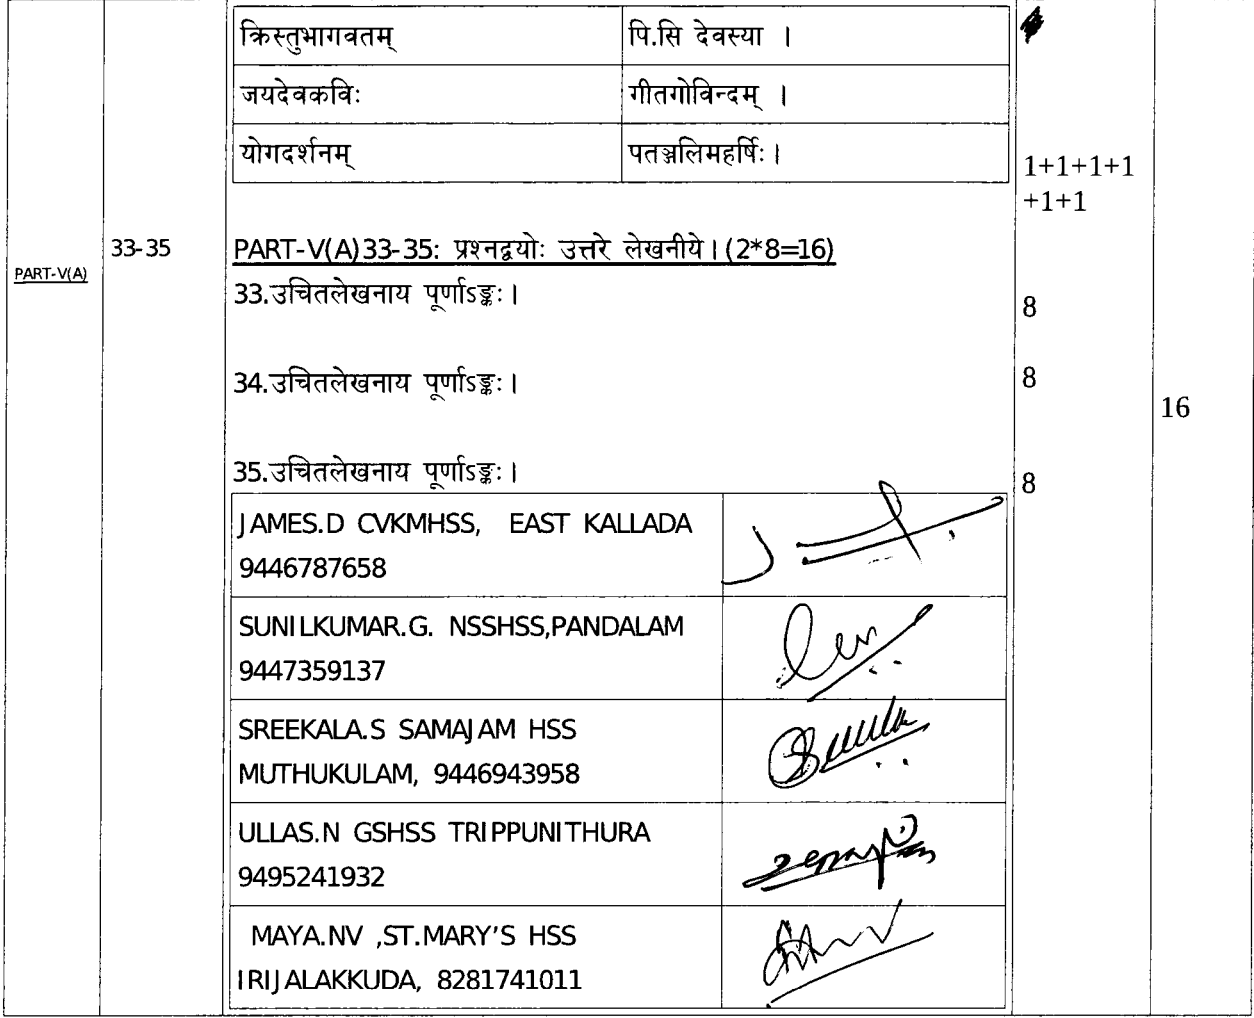 क्रिस्तुभागवतम् पि.सि देवस्या ।
जयदेवकविः गीतगोविन्दम् ।
योगदर्शनम् पतञ्जलिमहर्षिः।
1+1+1+1
+1+1
PART-V(A) 33-35 PART-V(A)33-35: प्रश्नद्वयोः उत्तरे लेखनीये।(2*8=16)
33.उचितलेखनाय पूर्णाऽङ्कः। 8
34.उचितलेखनाय पूर्णाऽङ्कः। 8
16
35.उचितलेखनाय पूर्णाऽङ्कः। 8
JAMES.D CVKMHSS, EAST KALLADA
9446787658
SUNILKUMAR.G. NSSHSS,PANDALAM
9447359137
SREEKALA.S SAMAJAM HSS
MUTHUKULAM, 9446943958
ULLAS.N GSHSS TRIPPUNITHURA
9495241932
MAYA.NV ,ST.MARY'S HSS
IRIJALAKKUDA, 8281741011